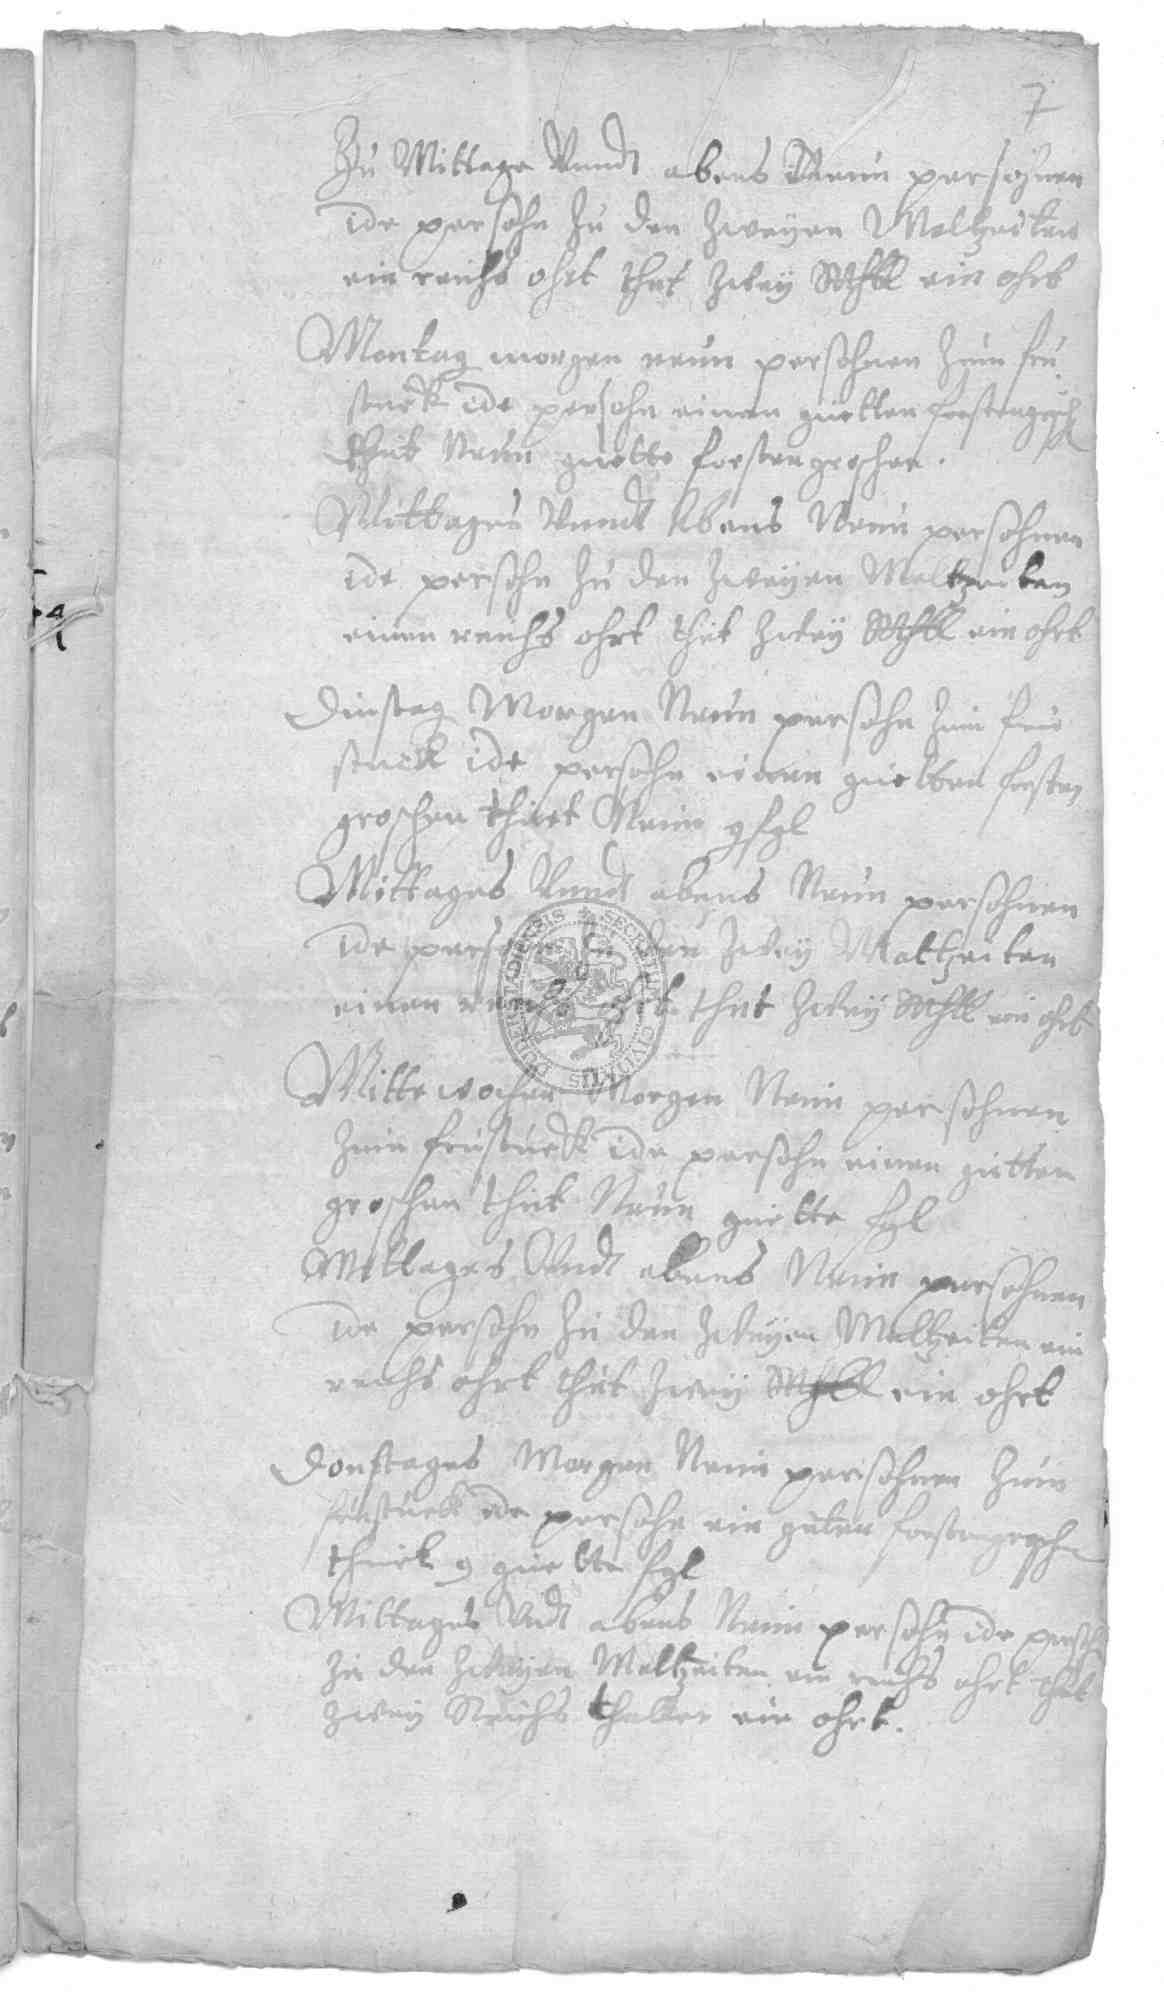 7
Zu Mittage Vnndt abens Neun persohnen
ide persohn zu den zweyen Maltzeiten
ein reichs ohrt thut zwey Rthll ein ohrt
Montag morgen neun persohnen zum fru
stuck ide persohn einen guetten fursten grosch
thut Neun guette fursten groschen.
Mittages Vnndt Abens Neun persohnen
ide persohn zu den zweyen Maltzeiten
einen reichs ohrt thut zwey Rthll ein ohrt
Dinstag Morgen Neun persohn zum fru
stuck ide persohn einen guetten fursten
groschen thuet Neun gfgl
Mittages Vnndt abens Neun persohnen
ide persohn zu den zwey Maltzeiten
einen reichs ohrt thut zwey Rthll ein ohrt
Mittewochen Morgen Neun persohnen
zum frustuck ide persohn einen gutten
groschen thut Neun guette fgl
Mittages Vndt abens Neun persohnen
ide persohn zu den zweyen Maltzeiten ein
reichs ohrt thut zwey Rthll ein ohrt
Donstages Morgen Neun persohnen zum
frustuck ide persohn ein guten fursten grosch
thuet 9 guette fgl
Mittages Vndt abens Neun persohn ide persohn
zu den zweyen Maltzeiten ein reichs ohrt thut
zwey Reichs thaller ein ohrt.
SECRETUM CIVITATIS